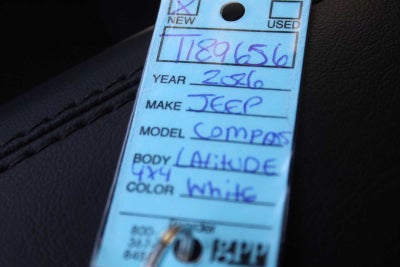 X
NEW USED
T189656
YEAR 2026
MAKE JEEP
MODEL COMPASS
BODY LATITUDE
4X4
COLOR White
Reorder
800-
BPP